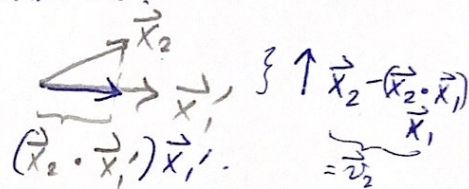 x⃗₂
x⃗₁′ } ↑ x⃗₂ - (x⃗₂ · x⃗₁)
x⃗₁
(x⃗₂ · x⃗₁′) x⃗₁′.
= v⃗₂